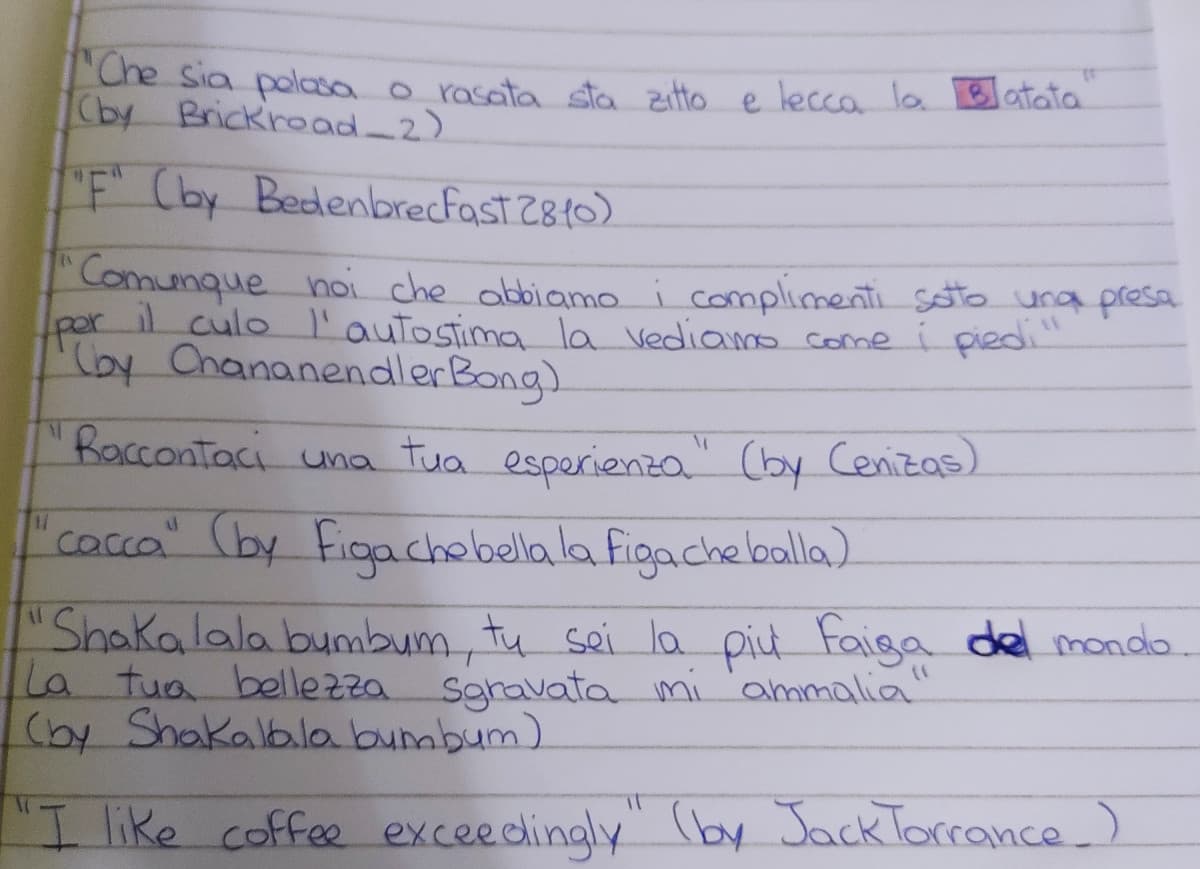 "Che sia pelosa o rasata sta zitto e lecca la Batata"
(by Brickroad_2)
"F" (by Bedenbrecfast2810)
"Comunque noi che abbiamo i complimenti sotto una presa
per il culo l'autostima la vediamo come i piedi"
(by ChananendlerBong)
"Raccontaci una tua esperienza" (by Cenizas)
"cacca" (by Figachebellalafigacheballa)
"Shakalalabumbum, tu sei la più faiga del mondo.
La tua bellezza sgravata mi ammalia"
(by Shakalalabumbum)
"I like coffee exceedingly" (by JackTorrance_)